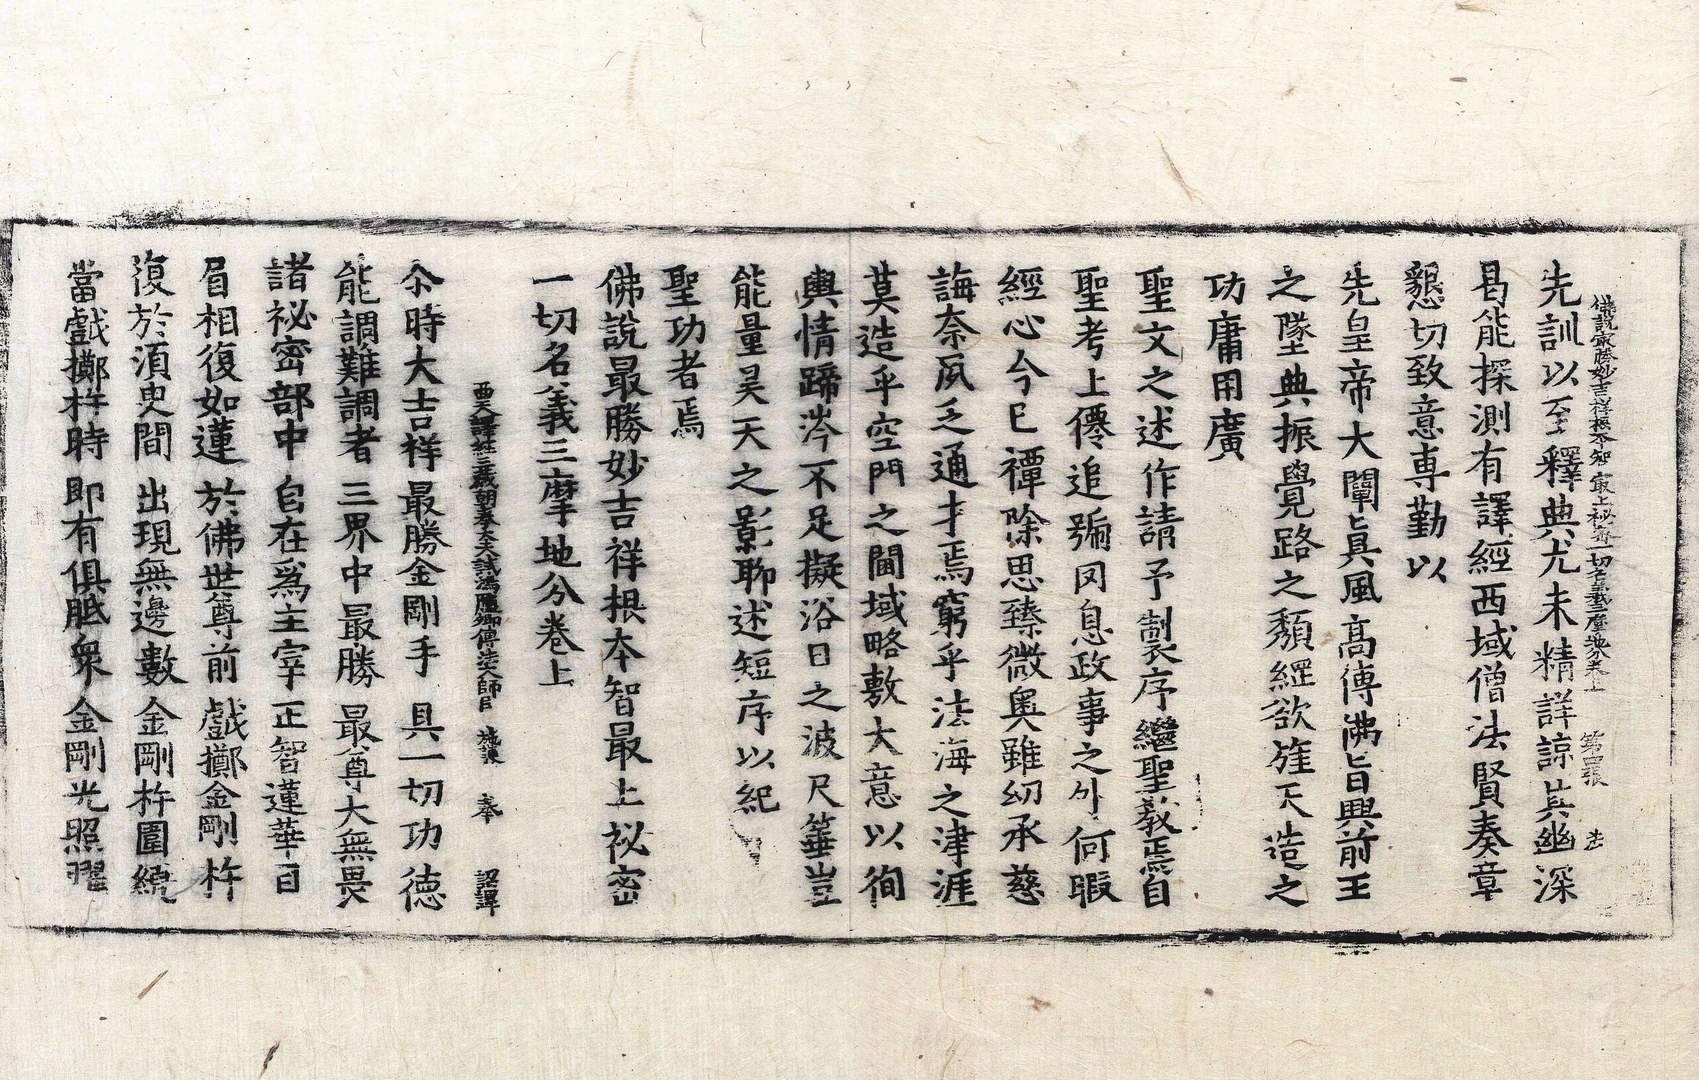 佛說最勝妙吉祥根本智最上祕密一切名義三摩地分卷上 第四張 法
先訓以至釋典尤未精詳諒其幽深
曷能探測有譯經西域僧法賢奏章
懇切致意専勤以
先皇帝大闡眞風髙傳沸旨興前王
之墜典振覺路之頽綱欲旌天造之
功庸用廣
聖文之述作請予制序繼聖教焉自
聖考上僊追號罔息政事之外何暇
經心今已禫除思臻微奧雖幼承慈
誨奈夙乏通才焉窮乎法海之津涯
莫造乎空門之閫域略敷大意以徇
輿情蹄涔不足擬浴日之波尺箠豈
能量昊天之影聊述短序以紀
聖功者焉
佛說最勝妙吉祥根本智最上祕密
一切名義三摩地分卷上
西天譯經三藏朝奉大夫試鴻臚卿傳法大師臣 施護 奉 詔譯
尒時大吉祥 最勝金剛手 具一切功德
能調難調者 三界中最勝 最尊大無畏
諸祕密部中 自在爲主宰 正智蓮華目
眉相復如蓮 於佛世尊前 戲擲金剛杵
復於湏臾間 出現無邊數 金剛杵圍繞
當戲擲杵時 即有俱胝衆 金剛光照曜